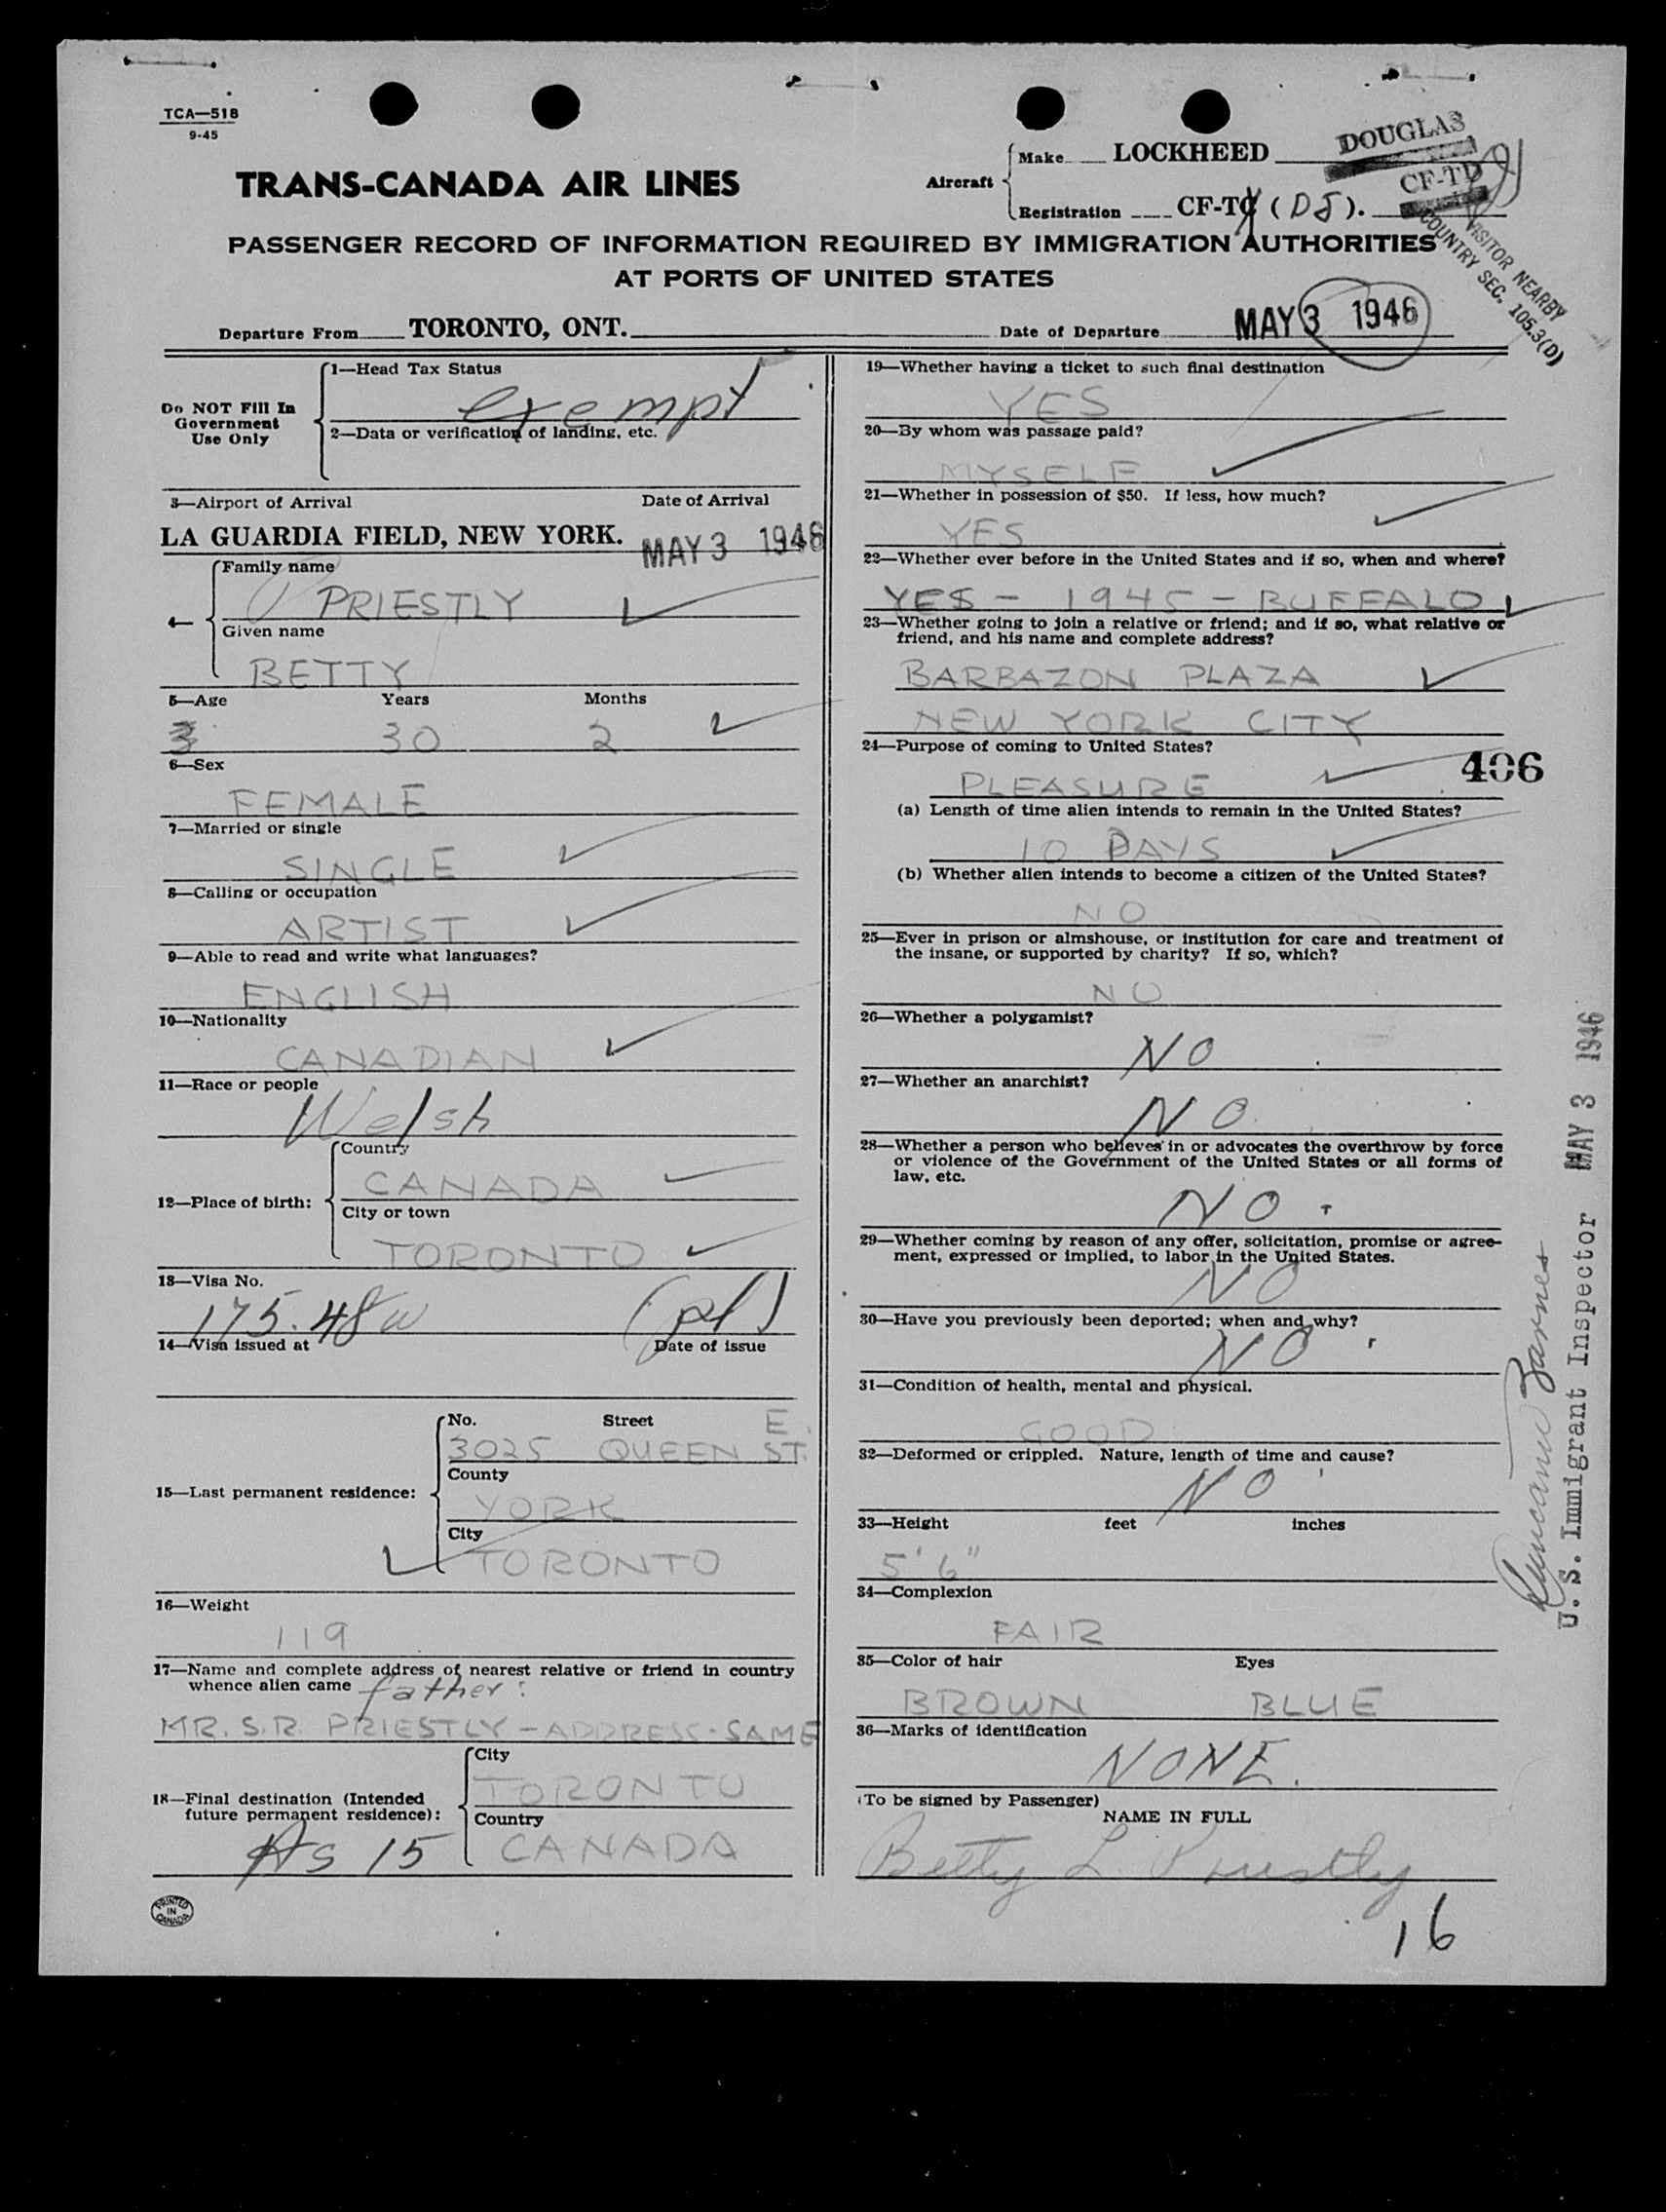 TCA—518
9-45
TRANS-CANADA AIR LINES
Aircraft
Make LOCKHEED
Registration CF-TC (DJ).
DOUGLAS
CF-TD
VISITOR NEARBY
COUNTRY SEC. 105.3(D)
PASSENGER RECORD OF INFORMATION REQUIRED BY IMMIGRATION AUTHORITIES
AT PORTS OF UNITED STATES
Departure From TORONTO, ONT. Date of Departure MAY 3 1946
Do NOT Fill In
Government
Use Only
1—Head Tax Status
exempt
2—Data or verification of landing, etc.
3—Airport of Arrival Date of Arrival
LA GUARDIA FIELD, NEW YORK. MAY 3 1946
4—
Family name
PRIESTLY
Given name
BETTY
5—Age Years Months
3 30 2
6—Sex
FEMALE
7—Married or single
SINGLE
8—Calling or occupation
ARTIST
9—Able to read and write what languages?
ENGLISH
10—Nationality
CANADIAN
11—Race or people
Welsh
12—Place of birth:
Country
CANADA
City or town
TORONTO
13—Visa No.
175.48 (pl)
14—Visa issued at Date of issue
15—Last permanent residence:
No. Street E.
3025 QUEEN ST.
County
YORK
City
TORONTO
16—Weight
119
17—Name and complete address of nearest relative or friend in country
whence alien came father:
MR. S.R. PRIESTLY – ADDRESS - SAME
18—Final destination (Intended
future permanent residence):
As 15
City
TORONTO
Country
CANADA
PRINTED
IN
CANADA
19—Whether having a ticket to such final destination
YES
20—By whom was passage paid?
MYSELF
21—Whether in possession of $50. If less, how much?
YES
22—Whether ever before in the United States and if so, when and where?
YES – 1945 – BUFFALO
23—Whether going to join a relative or friend; and if so, what relative or
friend, and his name and complete address?
BARBAZON PLAZA
NEW YORK CITY
24—Purpose of coming to United States?
PLEASURE
406
(a) Length of time alien intends to remain in the United States?
10 DAYS
(b) Whether alien intends to become a citizen of the United States?
NO
25—Ever in prison or almshouse, or institution for care and treatment of
the insane, or supported by charity? If so, which?
NO
26—Whether a polygamist?
NO
27—Whether an anarchist?
NO.
28—Whether a person who believes in or advocates the overthrow by force
or violence of the Government of the United States or all forms of
law, etc.
NO.
29—Whether coming by reason of any offer, solicitation, promise or agree-
ment, expressed or implied, to labor in the United States.
NO
30—Have you previously been deported; when and why?
NO
31—Condition of health, mental and physical.
GOOD
32—Deformed or crippled. Nature, length of time and cause?
NO
33—Height feet inches
5' 6"
34—Complexion
FAIR
35—Color of hair Eyes
BROWN BLUE
36—Marks of identification
NONE.
(To be signed by Passenger)
NAME IN FULL
Betty L. Priestly
16
U. S. Immigrant Inspector MAY 3 1946